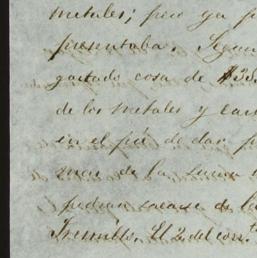 metales; pero ya
presentaba. Segun
gastado cosa de $35
de los metales y
en el pié de dar
mas de la suma
podian sacarse de la
Trujillo. El 2. del corr.te